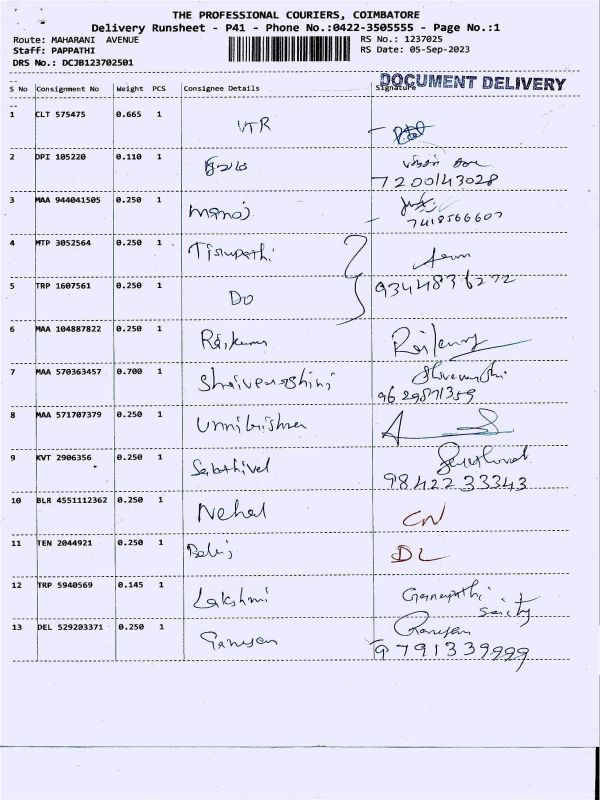 THE PROFESSIONAL COURIERS, COIMBATORE
Delivery Runsheet - P41 - Phone No.:0422-3505555 - Page No.:1
Route: MAHARANI AVENUE RS No.: 1237025
Staff: PAPPATHI RS Date: 05-Sep-2023
DRS No.: DCJB123702501
DOCUMENT DELIVERY
S No Consignment No Weight PCS Consignee Details Signature
1 CLT 575475 0.665 1 VTR
2 DPI 105220 0.110 1
7200143028
3 MAA 944041505 0.250 1 manoj
7418566607
4 MTP 3052564 0.250 1 Tirupathi Arun
5 TRP 1607561 0.250 1 Do 9344836272
6 MAA 104887822 0.250 1 Rajkumar
7 MAA 570363457 0.700 1
9629871359
8 MAA 571707379 0.250 1 Unnikrishnan
9 KVT 2906356 0.250 1 Sakthivel
9842233343
10 BLR 4551112362 0.250 1 Nehal CN
11 TEN 2044921 0.250 1 DL
12 TRP 5940569 0.145 1 Lakshmi Ganapathi
13 DEL 529203371 0.250 1 Ganesan Ganesan
9791339999